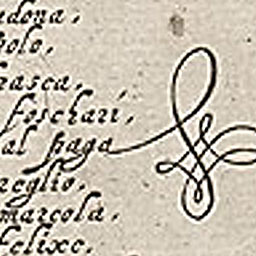 adona,
polo,
rasca,
foschari,
al paga
reglio,
marcola,
felixe,